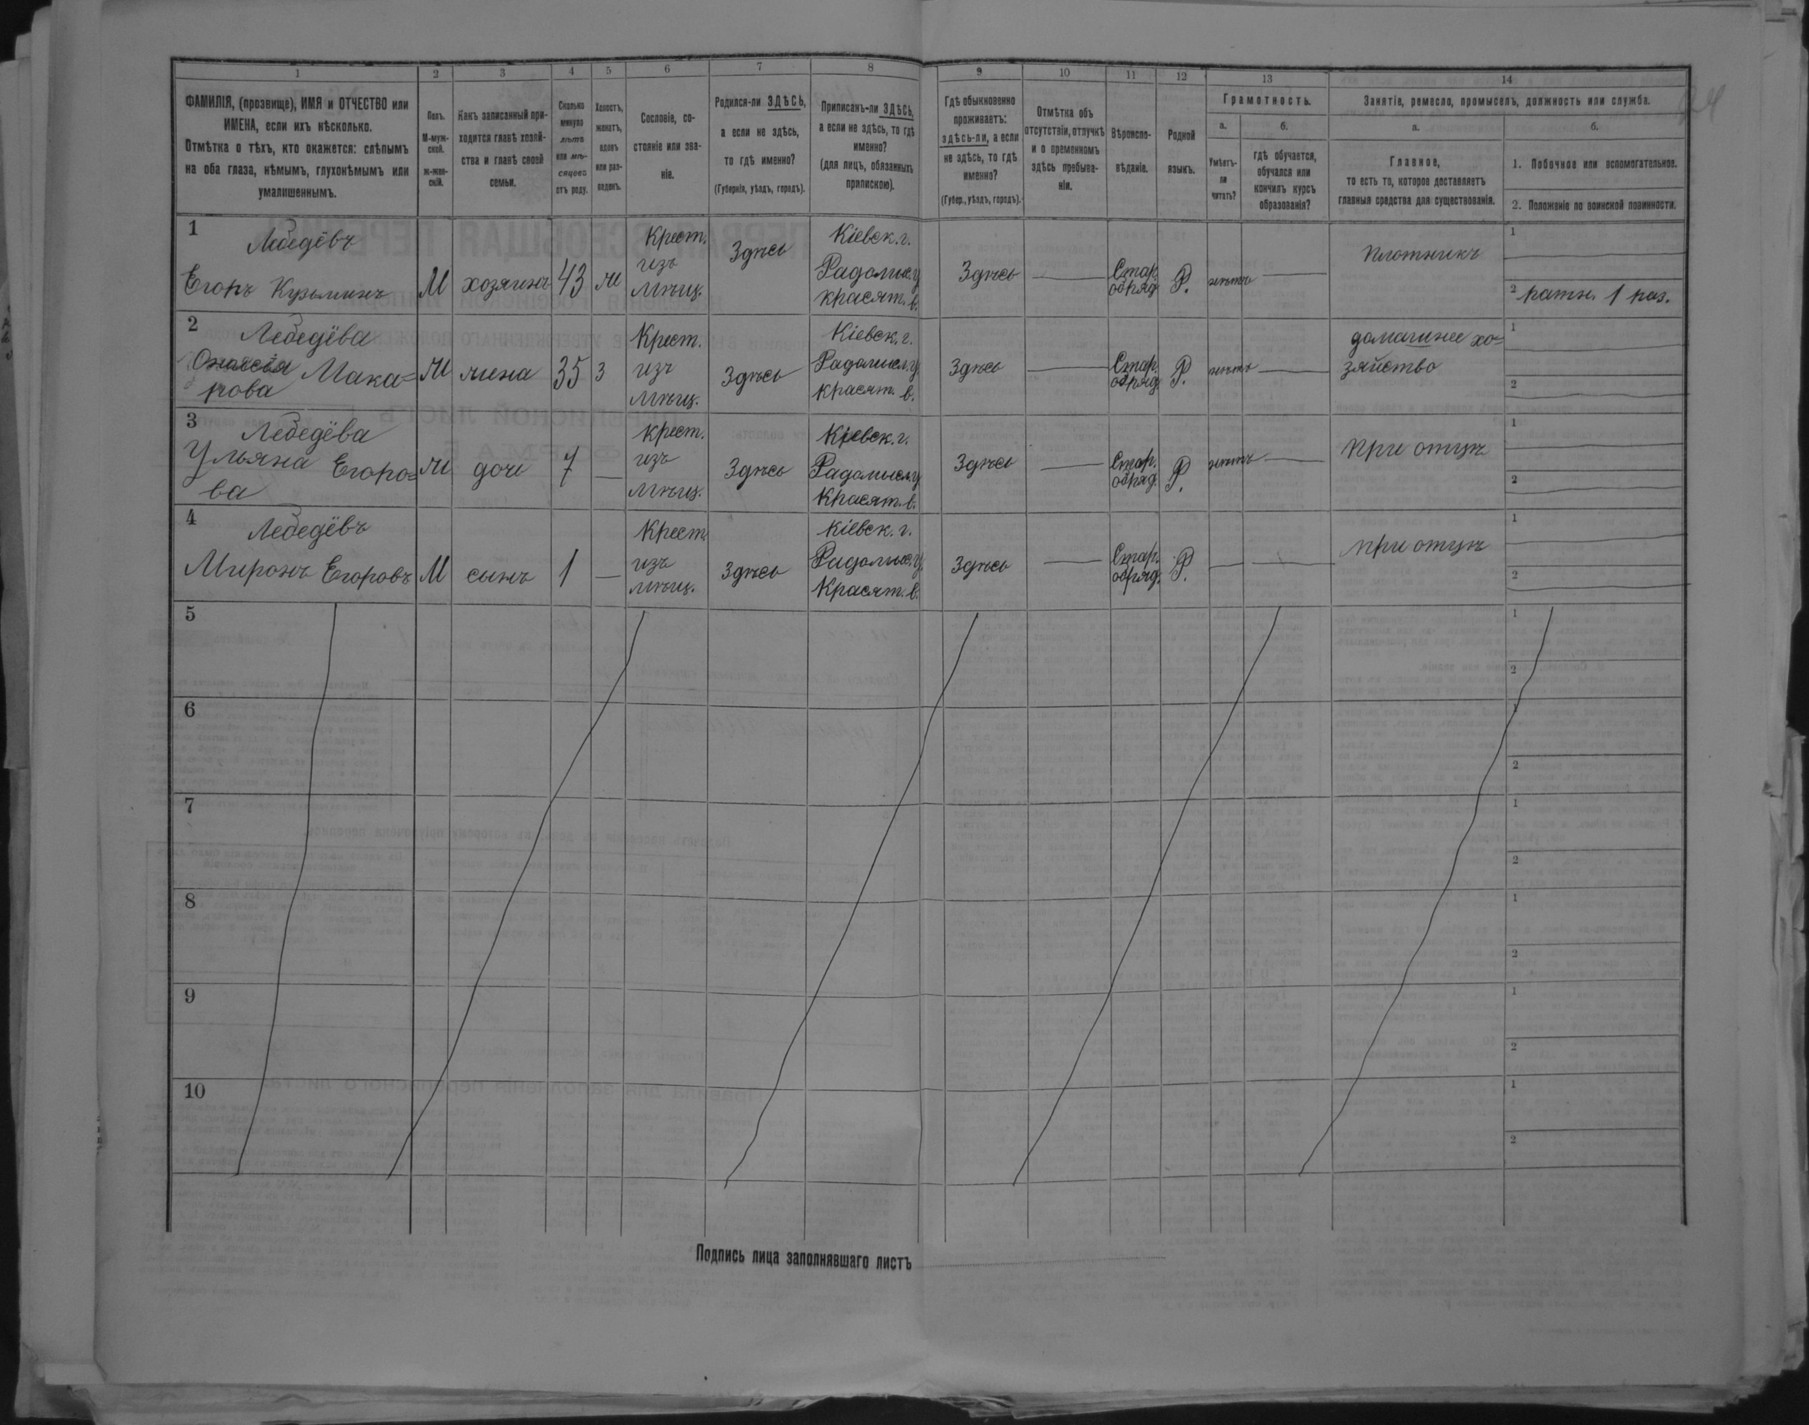 1 2 3 4 5 6 7 8 9 10 11 12 13 14
ФАМИЛІЯ, (прозвище), ИМЯ и ОТЧЕСТВО или
ИМЕНА, если ихъ нѣсколько.
Отмѣтка о тѣхъ, кто окажется: слѣпымъ
на оба глаза, нѣмымъ, глухонѣмымъ или
умалишеннымъ.
Полъ.
М-муж-
ской.
ж-жен-
скій.
Какъ записанный при-
ходится главѣ хозяй-
ства и главѣ своей
семьи.
Сколько
минуло
лѣтъ
или мѣ-
сяцевъ
отъ роду.
Холостъ,
женатъ,
вдовъ
или раз-
веденъ.
Сословіе, со-
стояніе или зва-
ніе.
Родился-ли ЗДѢСЬ,
а если не здѣсь,
то гдѣ именно?
(Губернія, уѣздъ, городъ).
Приписанъ-ли ЗДѢСЬ,
а если не здѣсь, то гдѣ
именно?
(для лицъ, обязанныхъ
припискою).
Гдѣ обыкновенно
проживаетъ:
здѣсь-ли, а если
не здѣсь, то гдѣ
именно?
(Губер., уѣздъ, городъ).
Отмѣтка объ
отсутствіи, отлучкѣ
и о временномъ
здѣсь пребыва-
ніи.
Вѣроиспо-
вѣданіе.
Родной
языкъ.
Грамотность.
а.
Умѣетъ-
ли
читать?
б.
гдѣ обучается,
обучался или
кончилъ курсъ
образованія?
Занятіе, ремесло, промыселъ, должность или служба.
а.
Главное,
то есть то, которое доставляетъ
главныя средства для существованія.
б.
1. Побочное или вспомогательное.
2. Положеніе по воинской повинности.
1
Лебедёвъ
Егоръ Кузьминъ
М
хозяинъ
43
Крест.
изъ
мѣщ.
Здѣсь
Кіевск. г.
Радомысл. у
красят. в.
Здѣсь
Стар.
обряд.
Р.
нѣтъ
плотникъ
1
2 ратн. 1 раз.
2
Лебедёва
Мака=
рова
жена
35
з
Крест.
изъ
мѣщ.
Здѣсь
Кіевск. г.
Радомысл. у
красят. в.
Здѣсь
Стар.
обряд.
Р.
нѣтъ
домашнее хо-
зяйство
1
2
3
Лебедёва
Ульяна Егоро=
ва
дочь
7
крест.
изъ
мѣщ.
Здѣсь
Кіевск. г.
Радомысл. у
Красят. в.
Здѣсь
Стар.
обряд.
Р.
нѣтъ
при отцѣ
1
2
4
Лебедёвъ
Миронъ Егоровъ
М
сынъ
1
Крест.
изъ
мѣщ.
Здѣсь
Кіевск. г.
Радомысл. у
Красят. в.
Здѣсь
Стар.
обряд.
Р.
при отцѣ
1
2
5
1
2
6
1
2
7
1
2
8
1
2
9
1
2
10
1
2
Подпись лица заполнявшаго листъ